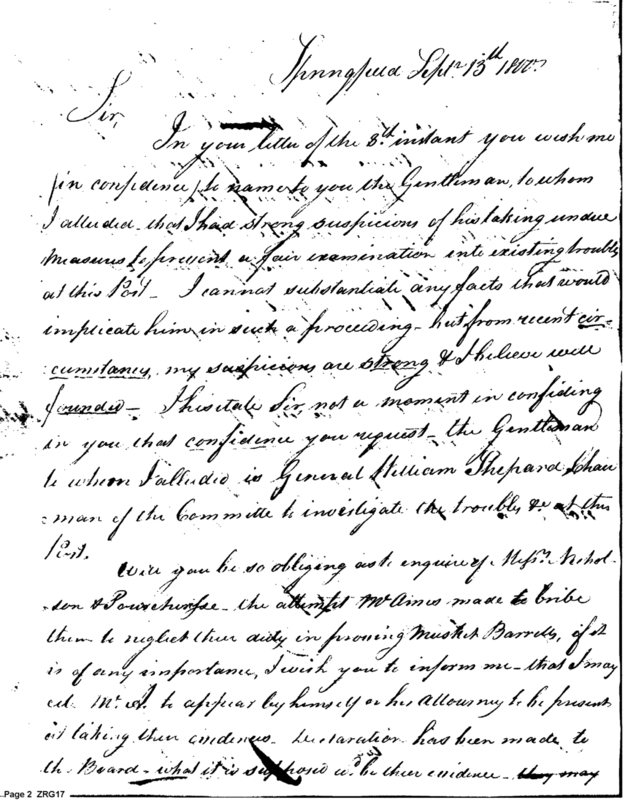 Springfield Septr. 13th 1800.
Sir,
In your letter of the 8th. instant you wish me
(in confidence) to name to you the Gentleman, to whom
I alluded - that I had strong suspicions of his taking undue
measures to prevent a fair examination into existing troubles
at this Post - I cannot substantiate any facts that would
implicate him in such a proceeding - but from recent cir-
cumstances, my suspicions are strong & I believe well
founded - I hesitate Sir, not a moment in confiding
in you that confidence you request - the Gentleman
to whom I alluded is General William Shepard Chair
man of the Committe to investigate the troubles &c at this
Post.
Will you be so obliging as to enquire of Messrs. Nichol-
son & - the attempt Mr Ames made to bribe
them to neglect their duty in proving Musket Barrells, if it
is of any importance, I wish you to inform me - that I may
Mr. A. to appear by himself or his Attourney to be present
at taking their evidences - Declaration has been made to
the Board - what it is supposed wd. be their evidence - they may
Page 2 ZRG17